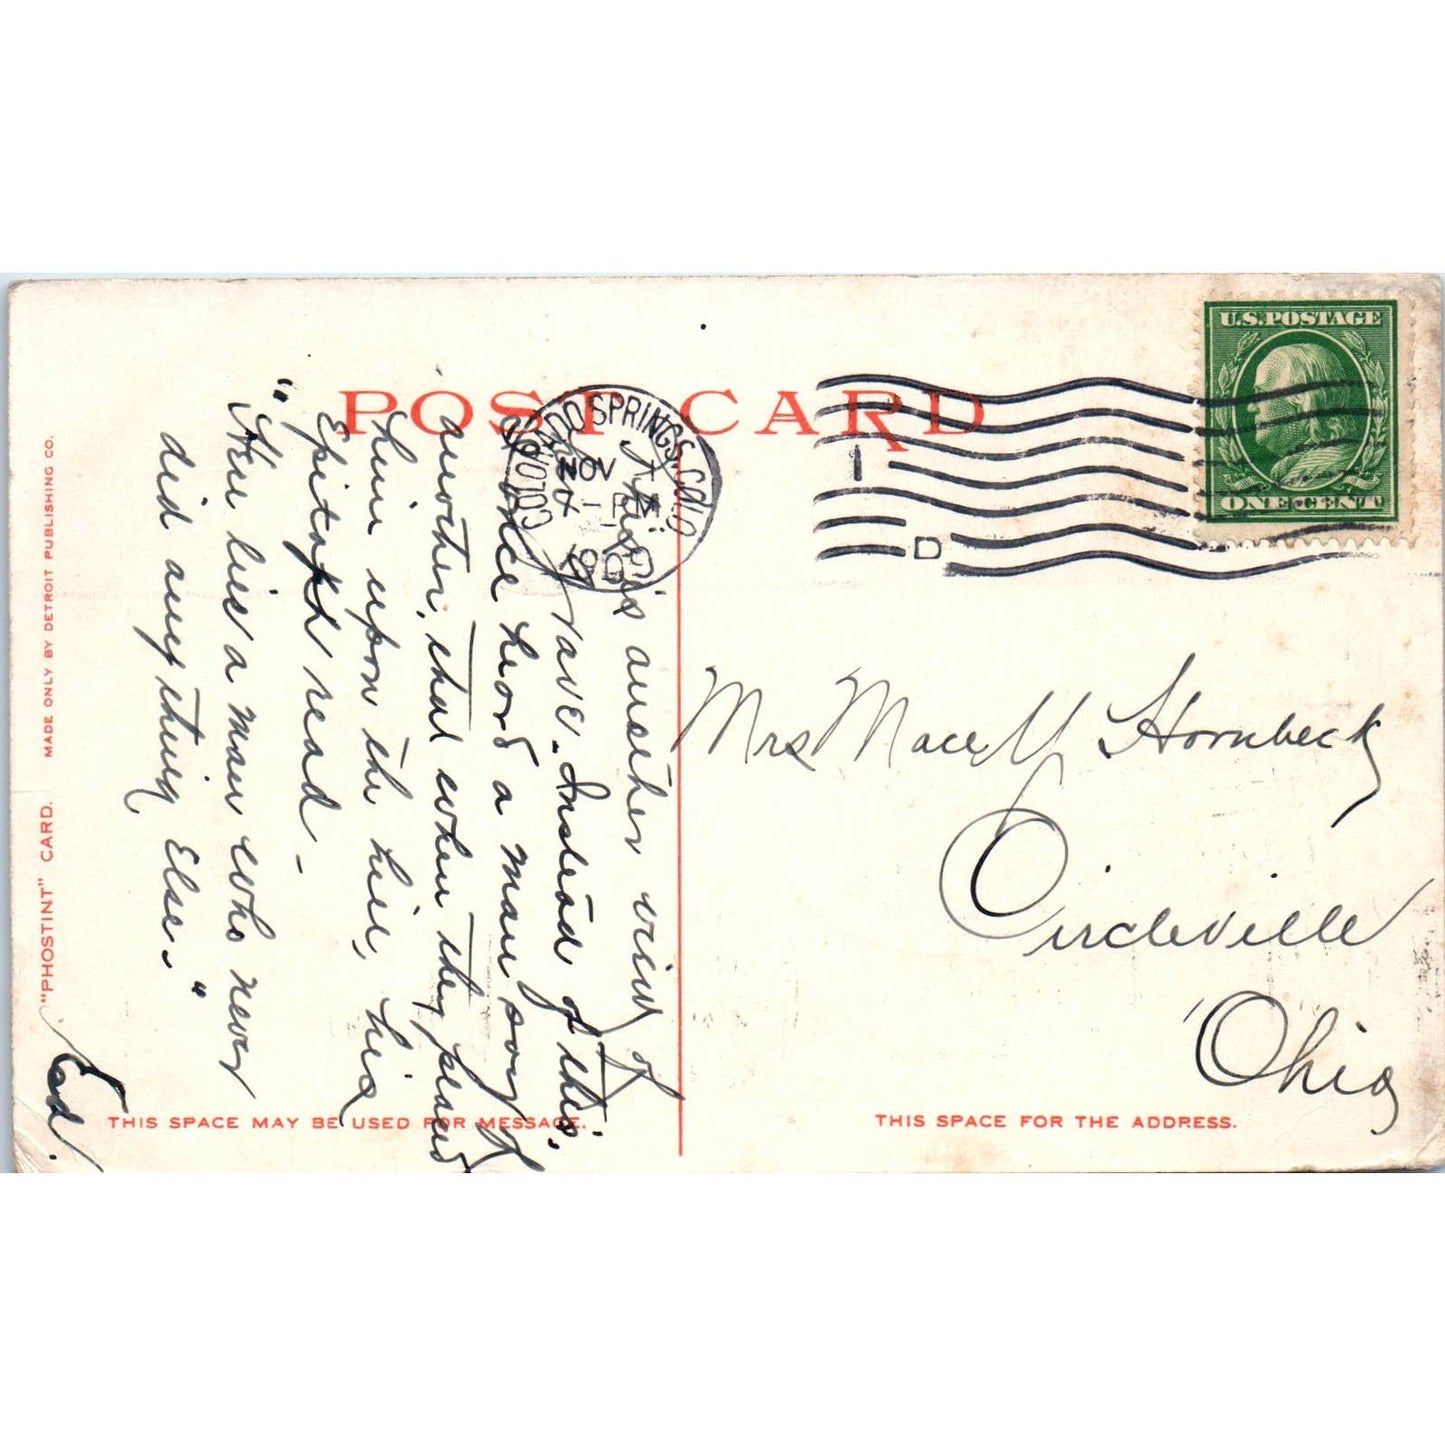 POST CARD
COLORADO SPRINGS, COLO
NOV
7-PM
U.S. POSTAGE
ONE CENT
1
D
This is another view of
the grave. Instead of this.
once heard a man say of
another, that when they placed
him upon the hill, his
Epitaph read -
"Here lies a man who never
did any thing Else."
Ead.
Mrs Mace Hornbeck
Circleville
Ohio
THIS SPACE MAY BE USED FOR MESSAGE.
THIS SPACE FOR THE ADDRESS.
"PHOSTINT" CARD. MADE ONLY BY DETROIT PUBLISHING CO.